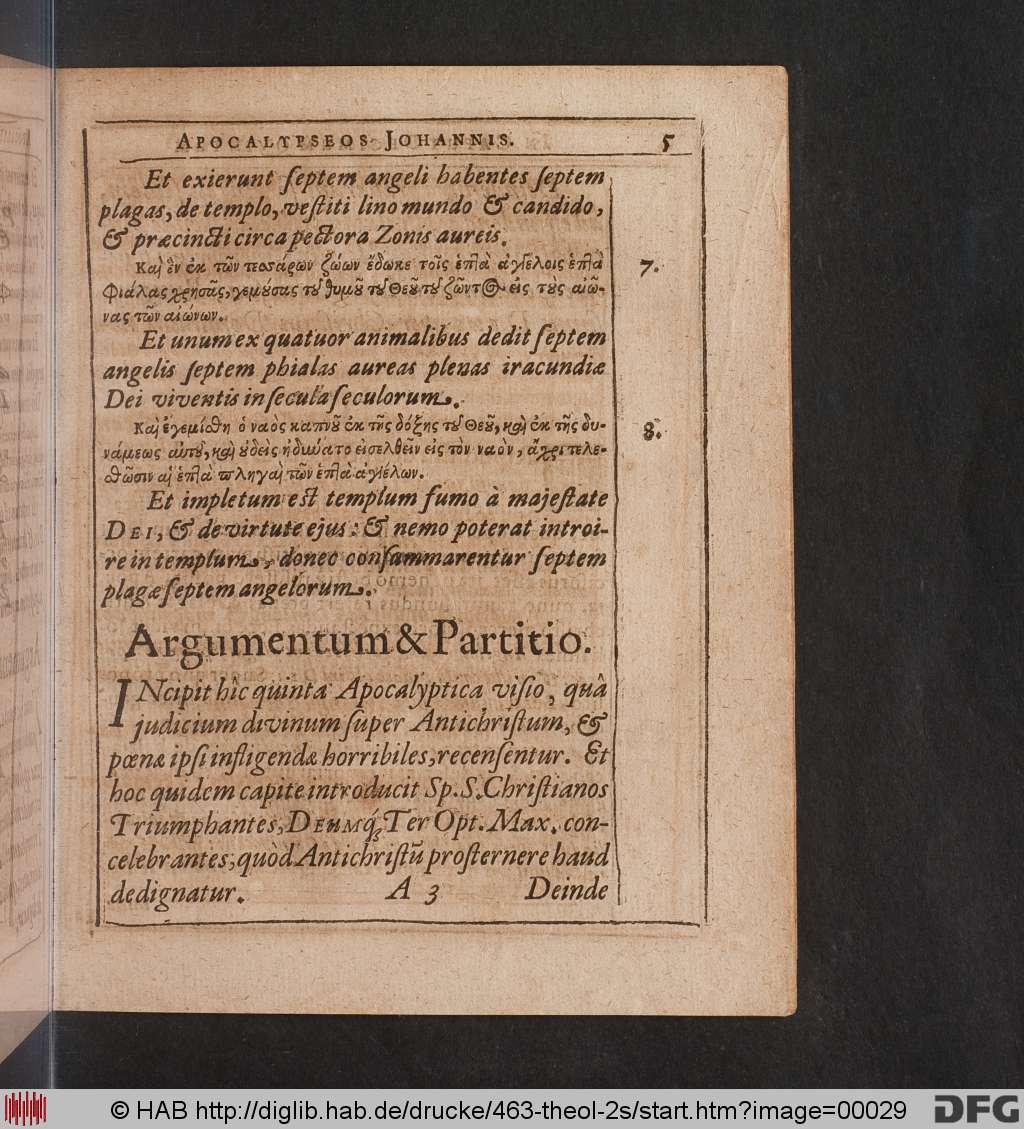 APOCALYPSEOS JOHANNIS. 5
Et exierunt ſeptem angeli habentes ſeptem
plagas, de templo, veſtiti lino mundo & candido,
& præcincti circa pectora Zonis aureis.
Καὶ ἓν ἐκ τῶν τεσσάρων ζώων ἔδωκε τοῖς ἑπτὰ ἀγγέλοις ἑπτὰ 7.
φιάλας χρυσᾶς, γεμούσας τοῦ θυμοῦ τοῦ Θεοῦ τοῦ ζῶντος εἰς τοὺς αἰῶ-
νας τῶν αἰώνων.
Et unum ex quatuor animalibus dedit ſeptem
angelis ſeptem phialas aureas plenas iracundiæ
Dei viventis in ſecula ſeculorum.
Καὶ ἐγεμίσθη ὁ ναὸς καπνοῦ ἐκ τῆς δόξης τοῦ Θεοῦ, καὶ ἐκ τῆς δυ- 8.
νάμεως αὐτοῦ, καὶ οὐδεὶς ἠδύνατο εἰσελθεῖν εἰς τὸν ναὸν, ἄχρι τελε-
σθῶσιν αἱ ἑπτὰ πληγαὶ τῶν ἑπτὰ ἀγγέλων.
Et impletum est templum fumo à majeſtate
DEI, & de virtute ejus: & nemo poterat introi-
re in templum, donec conſummarentur ſeptem
plagæ ſeptem angelorum.
Argumentum & Partitio.
INcipit hîc quinta Apocalyptica viſio, quâ
judicium divinum ſuper Antichriſtum, &
pœnæ ipſi infligendæ horribiles, recenſentur. Et
hoc quidem capite introducit Sp. S. Chriſtianos
Triumphantes, DEUMq́; Ter Opt. Max. con-
celebrantes, quòd Antichriſtũ proſternere haud
dedignatur. A 3 Deinde
© HAB http://diglib.hab.de/drucke/463-theol-2s/start.htm?image=00029 DFG